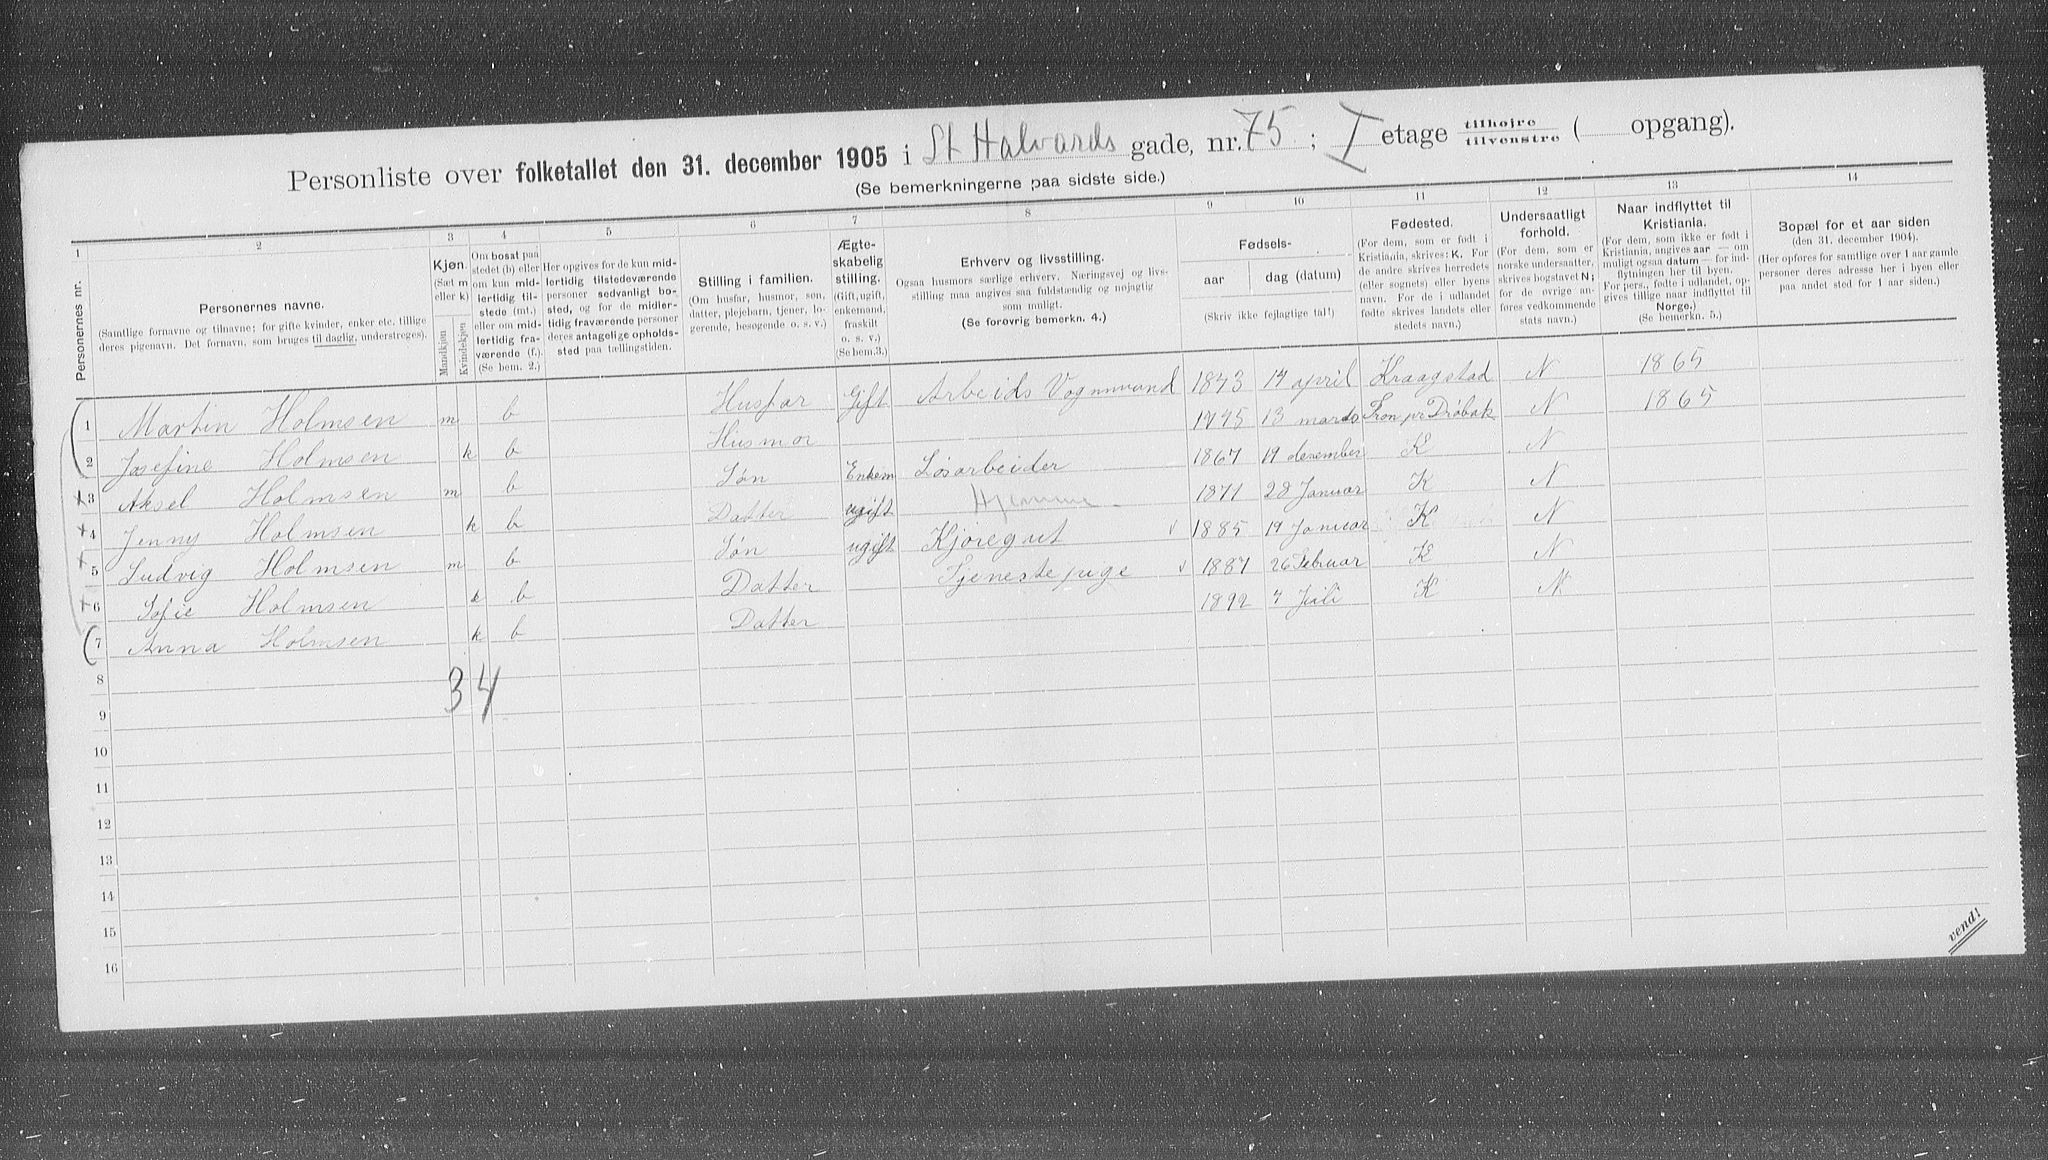 Personliste over folketallet den 31. december 1905 i St Halvards gade, nr. 75 ; I etage tilhøjre tilvenstre ( opgang).
(Se bemerkningerne paa sidste side.)
1 2 3 4 5 6 7 8 9 10 11 12 13 14
Personernes nr.
Personernes navne.
(Samtlige fornavne og tilnavne; for gifte kvinder, enker etc. tillige
deres pigenavn. Det fornavn, som bruges til daglig, understreges).
Kjøn.
(Sæt m
eller k)
Mandkjøn
Kvindekjøn
Om bosat paa
stedet (b) eller
om kun mid-
lertidig til-
stede (mt.)
eller om mid-
lertidig fra-
værende (f.).
(Se bem. 2.)
Her opgives for de kun mid-
lertidig tilstedeværende
personer sedvanligt bo-
sted, og for de midler-
tidig fraværende personer
deres antagelige opholds-
sted paa tællingstiden.
Stilling i familien.
(Om husfar, husmor, søn,
datter, plejebarn, tjener, lo-
gerende, besøgende o. s. v.)
Ægte-
skabelig
stilling.
(Gift, ugift,
enkemand,
fraskilt
o. s. v.)
(Se bem.3.)
Erhverv og livsstilling.
Ogsaa husmors særlige erhverv. Næringsvej og livs-
stilling maa angives saa fuldstændig og nøjagtig
som muligt.
(Se forøvrig bemerkn. 4.)
Fødsels-
aar dag (datum)
(Skriv ikke fejlagtige tal!)
Fødested.
(For dem, som er født i
Kristiania, skrives: K. For
de andre skrives herredets
(eller sognets) eller byens
navn. For de i udlandet
fødte skrives landets eller
stedets navn.)
Undersaatligt
forhold.
(For dem, som er
norske undersaatter,
skrives bogstavet N;
for de øvrige an-
føres vedkommende
stats navn.)
Naar indflyttet til
Kristiania.
(For dem, som ikke er født i
Kristiania, angives aar — om
muligt ogsaa datum — for ind-
flytningen her til byen.
For pers., fødte i udlandet, op-
gives tillige naar indflyttet til
Norge.)
(Se bemerkn. 5.)
Bopæl for et aar siden
(den 31. december 1904).
(Her opføres for samtlige over 1 aar gamle
personer deres adresse her i byen eller
paa andet sted for 1 aar siden.)
1 Martin Holmsen m b Husfar Gift Arbeids Vognmand 1843 14 april Kraagstad N 1865
2 Josefine Holmsen k b Husmor 1845 13 marts Fron pr Drøbak N 1865
3 Aksel Holmsen m b Søn Enkem Løsarbeider 1867 19 desember K N
4 Jenny Holmsen k b Datter ugift Hjemme 1871 28 Januar K N
5 Ludvig Holmsen m b Søn ugift Kjøregut 1885 19 Januar K N
6 Sofie Holmsen k b Datter Tjenestepige 1887 26 Februar K N
7 Anna Holmsen k b Datter 1892 7 Juli K N
8
3 4
9
10
11
12
13
14
15
16
vend!